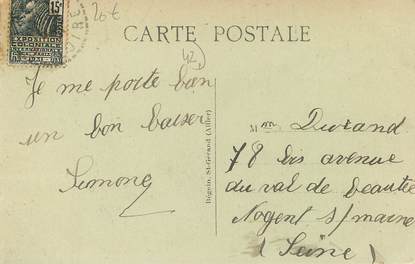 15c
EXPOSITION
COLONIALE
20€
CARTE POSTALE
42
Je me porte bien
un bon baiser
Simone
Béguin, St-Gérand (Allier)
Mme Durand
78 bis avenue
du val de beauté
Nogent s/ marne
(Seine)